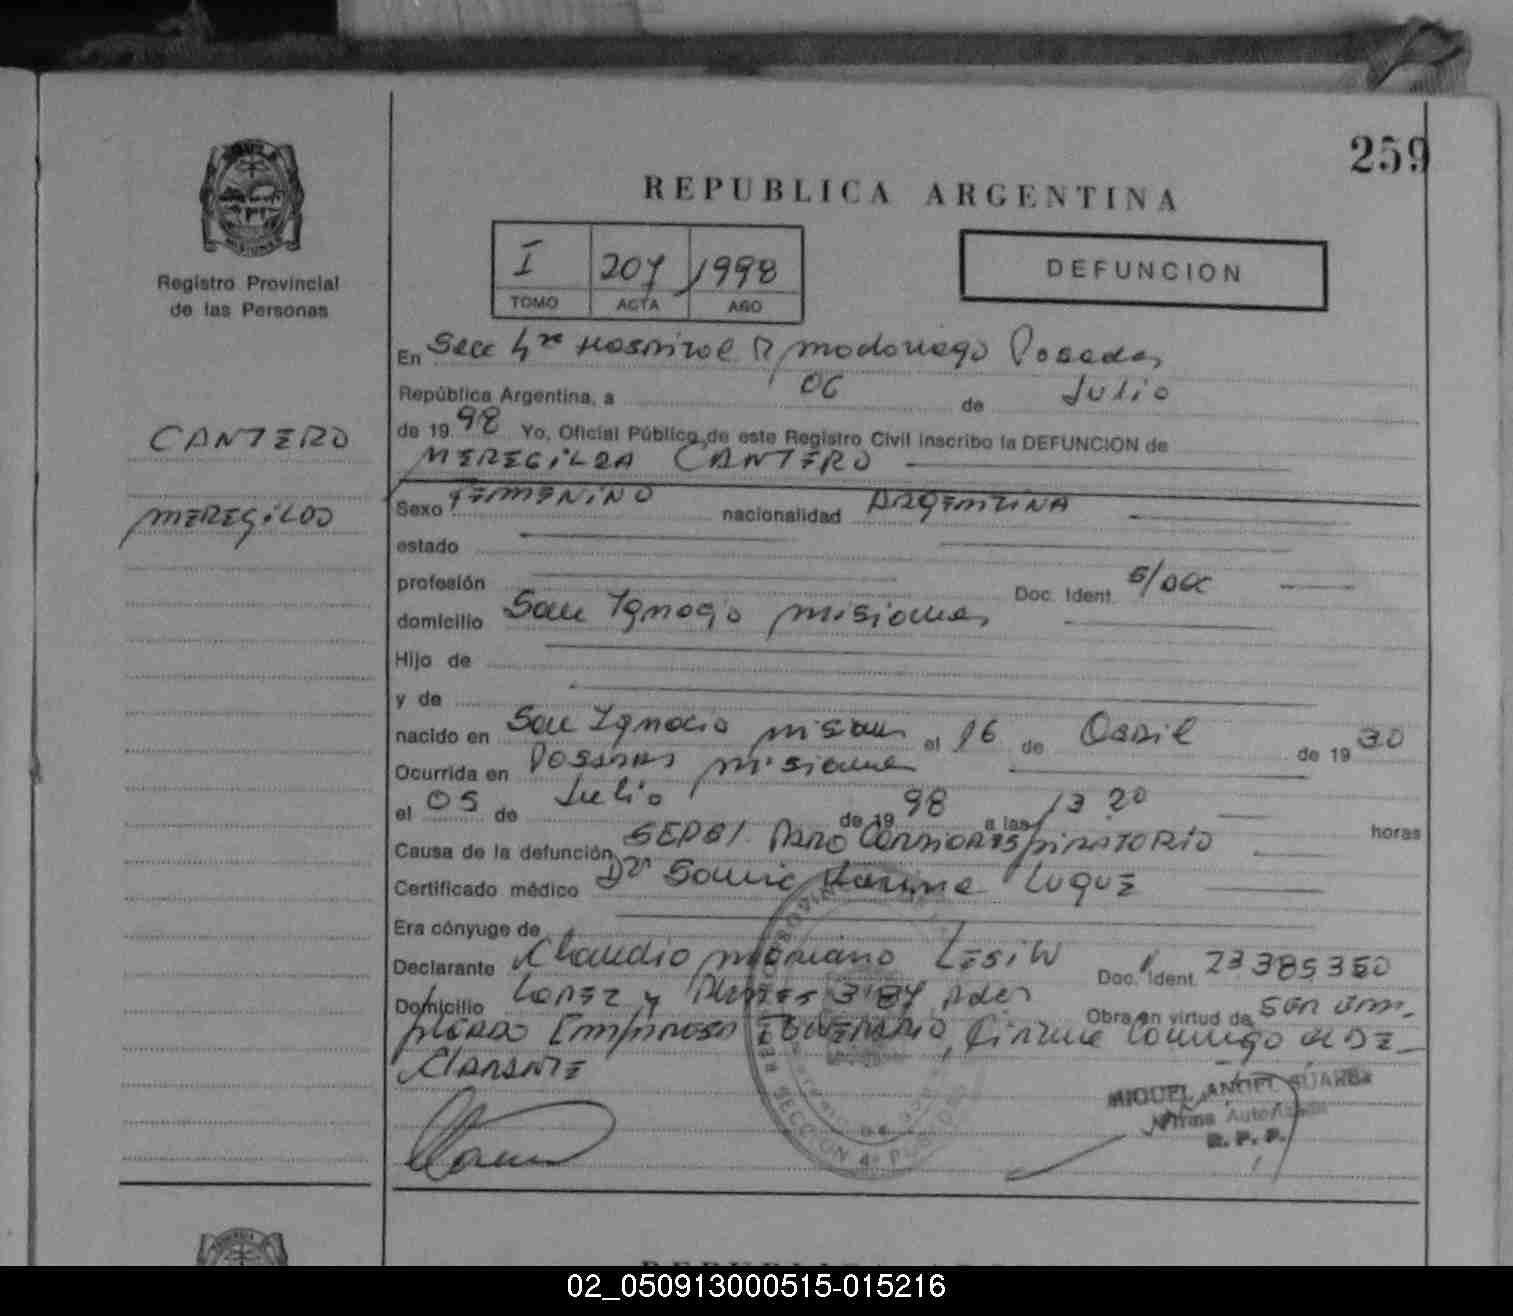 259
REPUBLICA ARGENTINA
I 207 1998
TOMO ACTA AÑO
DEFUNCION
MISIONES
Registro Provincial
de las Personas
CANTERO
MEREGILDO
En Secc 4ta Hospital R Madariaga Posadas
República Argentina, a 06 de Julio
de 19 98 Yo, Oficial Público de este Registro Civil inscribo la DEFUNCION de
MEREGILDA CANTERO
Sexo FEMENINO nacionalidad ARGENTINA
estado
profesión Doc. Ident. S/doc
domicilio San Ignacio Misiones
Hijo de
y de
nacido en San Ignacio Misiones el 16 de Abril de 19 30
Ocurrida en Posadas Misiones
el 05 de Julio de 19 98 a las 13 20 horas
Causa de la defunción SEPSI. PARO CARDIORESPIRATORIO
Certificado médico Dr LUQUE
Era cónyuge de
Declarante Claudio Mariano LESIW Doc. Ident. 23.385350
Domicilio LOPEZ y PLANES Pdas Obra en virtud de SER EM-
PLEADO EMPRESA FUNERARIA, firma conmigo el DE-
CLARANTE
MIGUEL ANGEL SUAREZ
Firma Autorizada
R. P. P.
SECCION 4ª
02_050913000515-015216